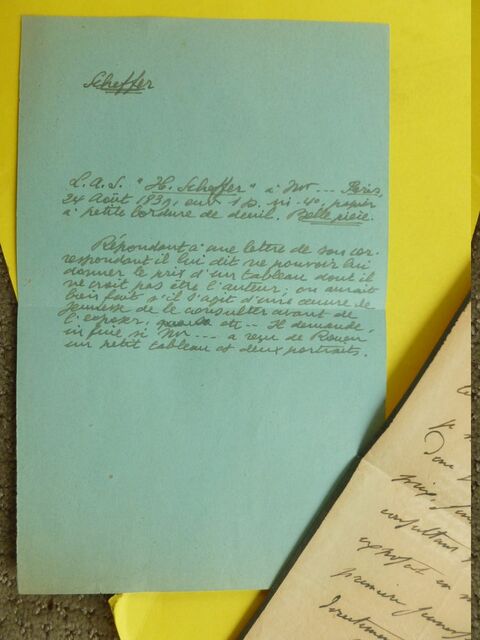 Scheffer
L.A.S. "H. Scheffer" à Mr --- Paris,
24 Août 1839, env 1 p. in-4°, papier
à petite bordure de deuil. Belle pièce.
Répondant à une lettre de son cor-
respondant il lui dit ne pouvoir lui
donner le prix d'un tableau dont il
ne croit pas être l'auteur; on aurait
bien fait s'il s'agit d'une œuvre de
jeunesse de le consulter avant de
l'exposer, etc -- Il demande,
in fine, si Mr ---- a reçu de Rouen
un petit tableau et deux portraits.
je
Donc
prix,
consultant
exposé en
premier